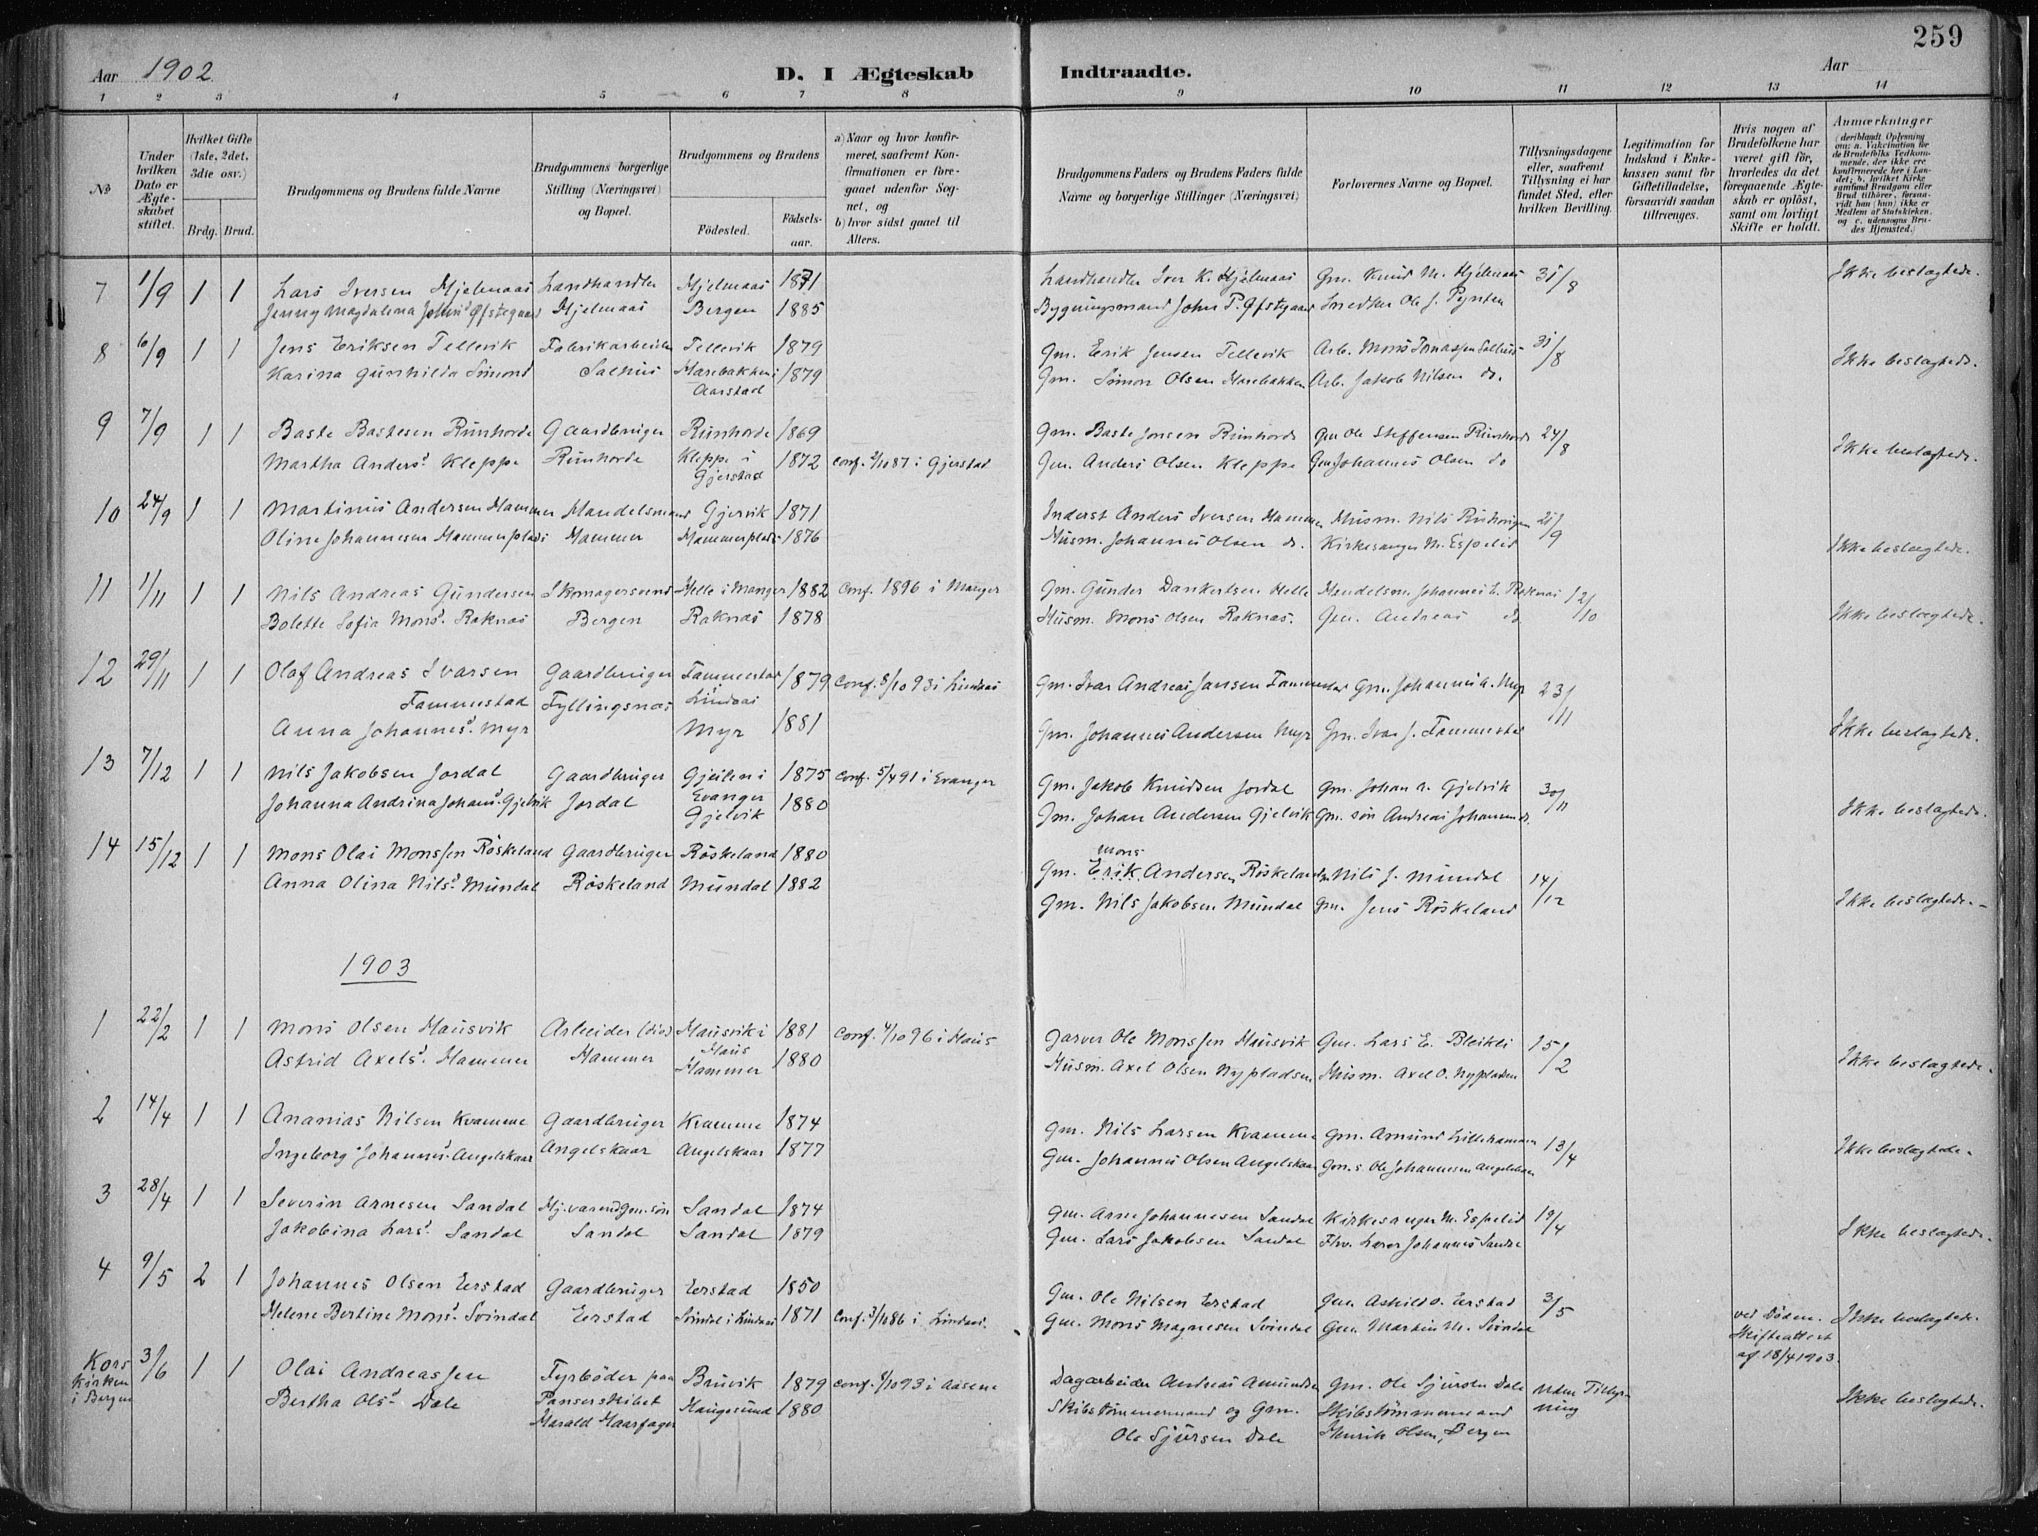 259
Aar 1902
D. I Ægteskab Indtraadte.
Aar
1 2 3 4 5 6 7 8 9 10 11 12 13 14
No
Under hvilken Dato er Ægteskabet stiftet.
Hvilket Gifte (1ste, 2det, 3die osv.)
Brdg. Brud.
Brudgommens og Brudens fulde Navne
Brudgommens borgerlige Stilling (Næringsvei) og Bopæl.
Brudgommens og Brudens
Födested. Födselsaar.
a) Naar og hvor konfirmeret, saafremt Konfirmationen er foregaaet udenfor Sognet, og
b) hvor sidst gaaet til Alters.
Brudgommens Faders og Brudens Faders fulde Navne og borgerlige Stillinger (Næringsvei)
Forlovernes Navne og Bopæl.
Tillysningsdagene eller, saafremt Tillysning ei har fundet Sted, efter hvilken Bevilling.
Legitimation for Indskud i Enkekassen samt for Giftetilladelse, forsaavidt saadan tiltrænges.
Hvis nogen af Brudefolkene har været gift för, hvorledes da det foregaaende Ægteskab er oplöst, samt om lovligt Skifte er holdt.
Anmærkninger
(deriblandt Oplysning om: a. Vakcination for de Brudefolks Vedkommende, der ikke ere konfirmerede her i Landet; b. hvilket Kirkesamfund Brudgom eller Brud tilhörer, forsaavidt han (hun) ikke er Medlem af Statskirken, og c. udensogns Brudes Hjemsted.)
7 1/9 1 1 Lars Iversen Hjelmaas Landhandler Hjelmaas 1871 Landhandler Iver K. Hjelmaas Gm. Knud M. Hjelmaas 31/8 Ikke beslægtede.
Jenny Magdalena Johns' Øfstegaard Hjelmaas Bergen 1885 Bygningsmand John P. Øfstegaard Snedker Ole J. Pynten
8 6/9 1 1 Jens Eriksen Tellevik Fabrikarbeider Tellevik 1879 Gm. Erik Jensen Tellevik Arb. Mons Jonassen Salhus 31/8 Ikke beslægtede.
Karina Gunhilda Simons' Salhus Harebakken i Aarstad 1879 Gm. Simon Olsen Harebakken Arb. Jakob Nilsen do.
9 7/9 1 1 Baste Bastesen Runhovde Gaardbruger Runhovde 1869 Gm. Baste Jonsen Runhovde Gm Ole Steffensen Runhovde 24/8 Ikke beslægtede.
Martha Anders' Kleppe Runhovde Kleppe i Gjerstad 1872 conf. 2/10 87 i Gjerstad Gm. Anders Olsen Kleppe Gm Johannes Olsen do
10 24/9 1 1 Martinus Andersen Hammer Handelsmand Gjervik 1871 Inderst Anders Iversen Hammer Husm. Nils 21/9 Ikke beslægtede.
Oline Johannesen Hammerplads Hammer Hammerplads 1876 Husm. Johannes Olsen do. Kirkesanger M. Espelid
11 1/11 1 1 Nils Andreas Gundersen Skomagersvend Helle i Manger 1882 Conf. 1896 i Manger Gm. Gunder Dankertsen Helle Handelsm. Johannes L. Raknas 12/10 Ikke beslægtede.
Bolette Sofia Mons' Raknas Bergen Raknas 1878 Husm. Mons Olsen Raknas. Gm. Andreas do
12 29/11 1 1 Olaf Andreas Ivarsen Gaardbruger Fammestad 1879 Conf. 8/10 93 i Lindaas Gm. Ivar Andreas Jansen Fammestad Gm. Johannes A. Myr 23/11
Fammestad Fyllingsnes Lindaas
Anna Johannes' Myr Myr 1881 Gm. Johannes Andersen Myr Gm. Ivar J. Fammestad Ikke beslægtede.
13 7/12 1 1 Nils Jakobsen Jordal Gaardbruger Gjeilen i Evanger 1875 conf. 5/4 91 i Evanger Gm. Jakob Knudsen Jordal Gm. Johan A. Gjelvik 30/11
Johanna Andrina Johans' Gjelvik Jordal Gjelvik 1880 Gm. Johan Andersen Gjelvik Gm. søn Andreas Johannes. Ikke beslægtede.
14 15/12 1 1 Mons Olai Monssen Røskeland Gaardbruger Røskeland 1880 Gm. Mons Erik Andersen Røskeland Gm Nils J. Mundal 14/12
Anna Olina Nils' Mundal Røskeland Mundal 1882 Gm. Nils Jakobsen Mundal Gm. Jens Røskeland Ikke beslægtede.
1903
1 22/2 1 1 Mons Olsen Hausvik Arbeider (do) Hausvik i Haus 1881 Conf. 4/10 96 i Haus Garver Ole Monssen Hausvik Gm. Lars E. Bleikli 15/2
Astrid Axels' Hammer Hammer Hammer 1880 Husm. Axel Olsen Nypladsen Husm. Axel O. Nypladsen Ikke beslægtede.
2 14/4 1 1 Ananias Nilsen Kvamme Gaardbruger Kvamme 1874 Gm. Nils Larsen Kvamme Gm. Amund Lillehammer 13/4
Ingeborg Johannes' Angelskaar Angelskaar Angelskaar 1877 Gm. Johannes Olsen Angelskaar Gm.s Ole Johannesen Angelskaar Ikke beslægtede.
3 28/4 1 1 Severin Arnesen Sandal Hj.varend Gm.søn Sandal 1874 Gm. Arne Johannesen Sandal Kirkesanger M. Espelid 19/4
Jakobina Lars' Sandal Sandal Sandal 1879 Gm. Lars Jakobsen Sandal Fhv. Lærer Johannes Sandal Ikke beslægtede.
4 9/5 2 1 Johannes Olsen Eerstad Gaardbruger Eerstad 1850 Gm. Ole Nilsen Eerstad Gm. Askild O. Eerstad 3/5
Helene Bertine Mons' Svindal Eerstad Svindal i Lindaas 1871 Conf. 3/10 86 i Lindaas. Gm. Mons Magnesen Svindal Gm. Martin M. Svindal ved Døden. Skifteattest af 18/4 1903. Ikke beslægtede.
Kors Kirken i Bergen 3/6 1 1 Olai Andreassen Fyrbøder paa Bruvik 1879 conf. 8/10 93 i Aasene Dagarbeider Andreas Amundsen Gm. Ole Sjursen Dale Uden Tillysning
Bertha Ols' Dale Panserskibet Haugesund 1880 Skibstømmermand og Gm. Skibstømmermand Ikke beslægtede.
Harald Haarfager Ole Sjursen Dale Henrik Olsen, Bergen